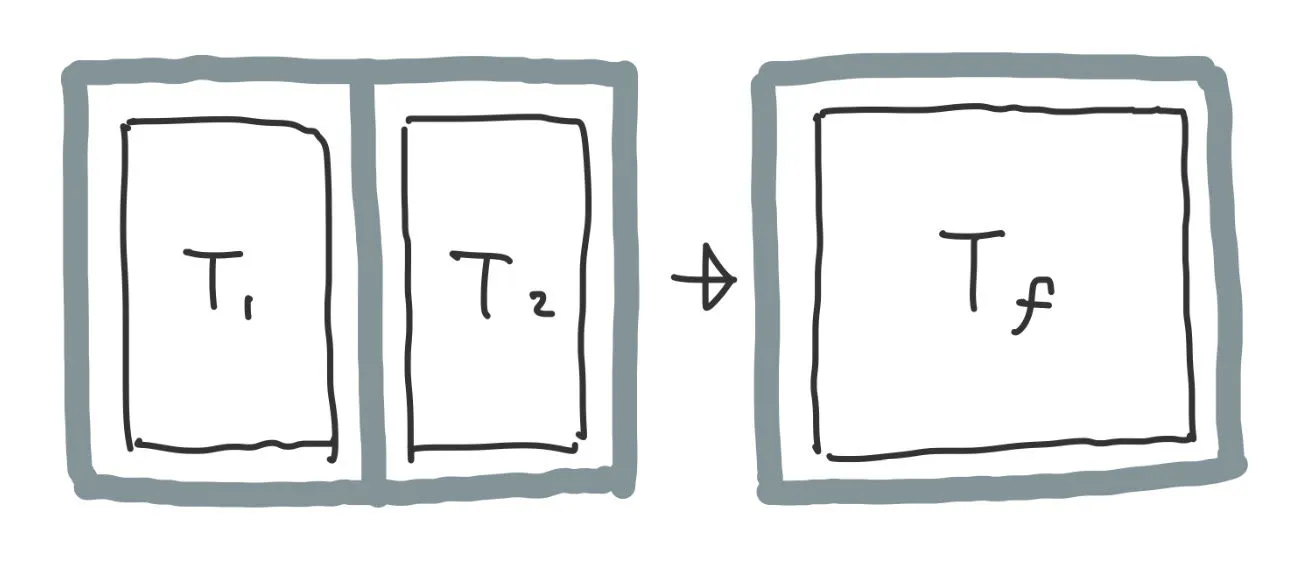 T₁ T₂ → T_f